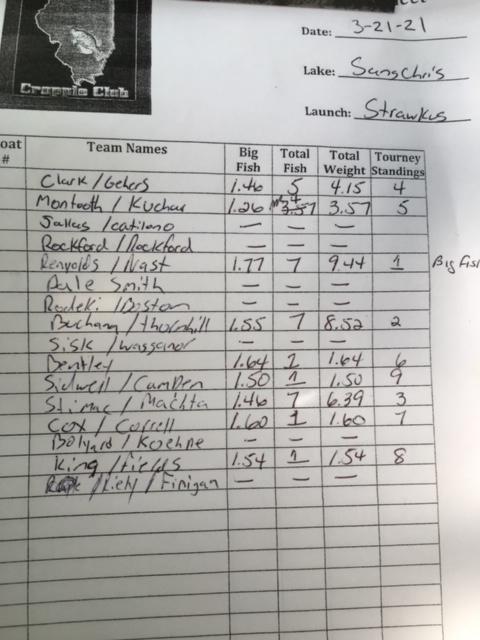 Crappie Club
Date: 3-21-21
Lake: Sangchris
Launch: Strawkus
oat # Team Names Big Fish Total Fish Total Weight Tourney Standings
Clark / Gehers 1.46 5 4.15 4
Montooth / Kuchar 1.26 3.57 5
Sallus / Catilano — — —
Rockford / Rockford — — —
Renyolds / Nast 1.77 7 9.44 1 Big Fish
Dale Smith — — —
Rodeki / Boston — — —
Buchany / thornhill 1.55 7 8.52 2
Sisk / Wassanor — — —
Bentley 1.64 1 1.64 6
Sidwell / Camden 1.50 1 1.50 9
Stimac / Machta 1.46 7 6.39 3
Cox / Correll 1.60 1 1.60 7
Bolyard / Koehne — — —
King / Fields 1.54 1 1.54 8
/ Kiehl / Finigan — — —